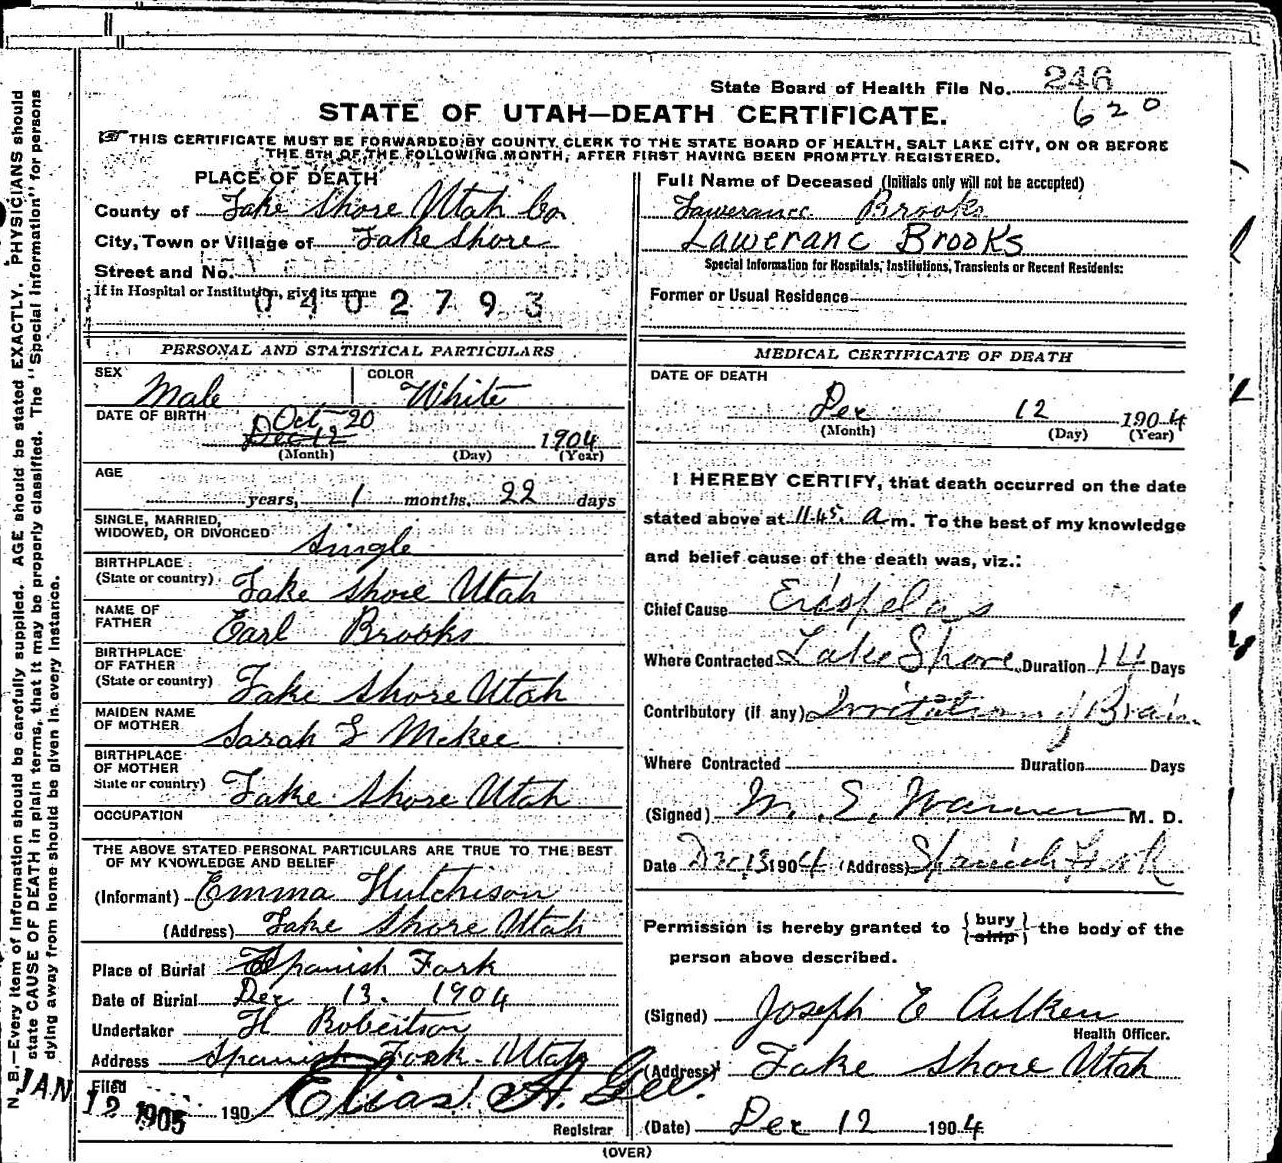 State Board of Health File No. 246
620
STATE OF UTAH—DEATH CERTIFICATE.
THIS CERTIFICATE MUST BE FORWARDED BY COUNTY CLERK TO THE STATE BOARD OF HEALTH, SALT LAKE CITY, ON OR BEFORE
THE 5TH OF THE FOLLOWING MONTH, AFTER FIRST HAVING BEEN PROMPTLY REGISTERED.
PLACE OF DEATH
County of Lake Shore Utah Co
City, Town or Village of Lake Shore
Street and No.
If in Hospital or Institution, give its name
0402793
Full Name of Deceased (Initials only will not be accepted)
Lawerance Brooks
Laweranc Brooks
Special Information for Hospitals, Institutions, Transients or Recent Residents:
Former or Usual Residence
PERSONAL AND STATISTICAL PARTICULARS
SEX Male COLOR White
DATE OF BIRTH Oct 20
Dec 12 1904
(Month) (Day) (Year)
AGE
years, 1 months, 22 days
SINGLE, MARRIED,
WIDOWED, OR DIVORCED Single
BIRTHPLACE
(State or country) Lake Shore Utah
NAME OF
FATHER Earl Brooks
BIRTHPLACE
OF FATHER
(State or country) Lake Shore Utah
MAIDEN NAME
OF MOTHER Sarah L McKee
BIRTHPLACE
OF MOTHER
State or country) Lake Shore Utah
OCCUPATION
THE ABOVE STATED PERSONAL PARTICULARS ARE TRUE TO THE BEST
OF MY KNOWLEDGE AND BELIEF
(Informant) Emma Hutchison
(Address) Lake Shore Utah
Place of Burial Spanish Fork
Date of Burial Dec 13. 1904
Undertaker H Robertson
Address Spanish Fork Utah
Filed
JAN 12 1905 190 Elias A. Gee.
Registrar
MEDICAL CERTIFICATE OF DEATH
DATE OF DEATH
Dec 12 1904
(Month) (Day) (Year)
I HEREBY CERTIFY, that death occurred on the date
stated above at 11.45. a m. To the best of my knowledge
and belief cause of the death was, viz.:
Chief Cause Erispelas
Where Contracted Lake Shore Duration 14 Days
Contributory (if any) Irritation of Brain
Where Contracted Duration Days
(Signed) W. E. Warner M. D.
Date Dec 13 1904 (Address) Spanish Fork
Permission is hereby granted to {bury
ship} the body of the
person above described.
(Signed) Joseph E Aitken
Health Officer.
(Address) Lake Shore Utah
(Date) Dec 12 1904
(OVER)
N. B.—Every item of information should be carefully supplied. AGE should be stated EXACTLY. PHYSICIANS should
state CAUSE OF DEATH in plain terms, that it may be properly classified. The "Special Information" for persons
dying away from home should be given in every instance.